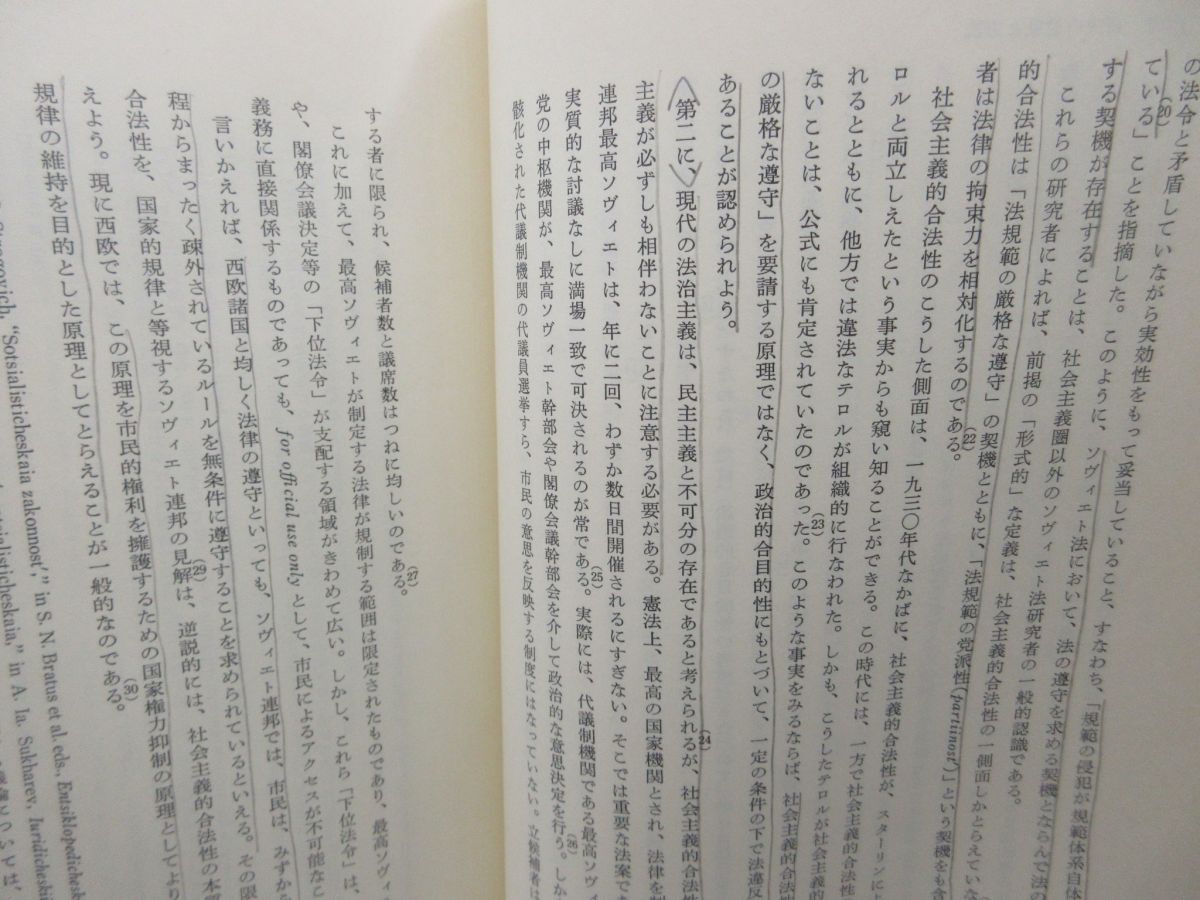 の法令と矛盾していながら実効性をもって妥当していること、すなわち、「規範の侵犯が規範体系自体
ている」(20)ことを指摘した。このように、ソヴィエト法において、法の遵守を求める契機とならんで法の
する契機が存在することは、社会主義圏以外のソヴィエト法研究者の一般的認識である。
これらの研究者によれば、前掲の「形式的」な定義は、社会主義的合法性の一側面しかとらえていな
的合法性は「法規範の厳格な遵守」の契機とともに、「法規範の党派性(partiinost')」という契機をも含
者は法律の拘束力を相対化するのである。(22)
社会主義的合法性のこうした側面は、一九三〇年代なかばに、社会主義的合法性が、スターリンに
ロルと両立しえたという事実からも窺い知ることができる。この時代には、一方で社会主義的合法性
れるとともに、他方では違法なテロルが組織的に行なわれた。しかも、こうしたテロルが社会主義的
ないことは、公式にも肯定されていたのであった。(23)このような事実をみるならば、社会主義的合法
の厳格な遵守」を要請する原理ではなく、政治的合目的性にもとづいて、一定の条件の下で法違反
あることが認められよう。
第二に、現代の法治主義は、民主主義と不可分の存在であると考えられるが、(24)社会主義的合法性
主義が必ずしも相伴わないことに注意する必要がある。憲法上、最高の国家機関とされ、法律を制
連邦最高ソヴィエトは、年に二回、わずか数日間開催されるにすぎない。そこでは重要な法案で
実質的な討議なしに満場一致で可決されるのが常である。(25)実際には、代議制機関である最高ソヴィ
党の中枢機関が、最高ソヴィエト幹部会や閣僚会議幹部会を介して政治的な意思決定を行う。(26)しか
骸化された代議制機関の代議員選挙すら、市民の意思を反映する制度にはなっていない。立候補者は
する者に限られ、候補者数と議席数はつねに均しいのである。(27)
これに加えて、最高ソヴィエトが制定する法律が規制する範囲は限定されたものであり、最高ソヴィ
や、閣僚会議決定等の「下位法令」が支配する領域がきわめて広い。しかし、これら「下位法令」は、
義務に直接関係するものであっても、for official use only として、市民によるアクセスが不可能なこ
言いかえれば、西欧諸国と均しく法律の遵守といっても、ソヴィエト連邦では、市民は、みずか
程からまったく疎外されているルールを無条件に遵守することを求められているといえる。その限
合法性を、国家的規律と等視するソヴィエト連邦の見解は、(29)逆説的には、社会主義的合法性の本
えよう。現に西欧では、この原理を市民的権利を擁護するための国家権力抑制の原理としてより
規律の維持を目的とした原理としてとらえることが一般的なのである。(30)
"Sotsialisticheskaia zakonnost'," in S. N. Bratus et al. eds., Entsiklopedichesk
in A. Ia. Sukharev, Iuridicheskii